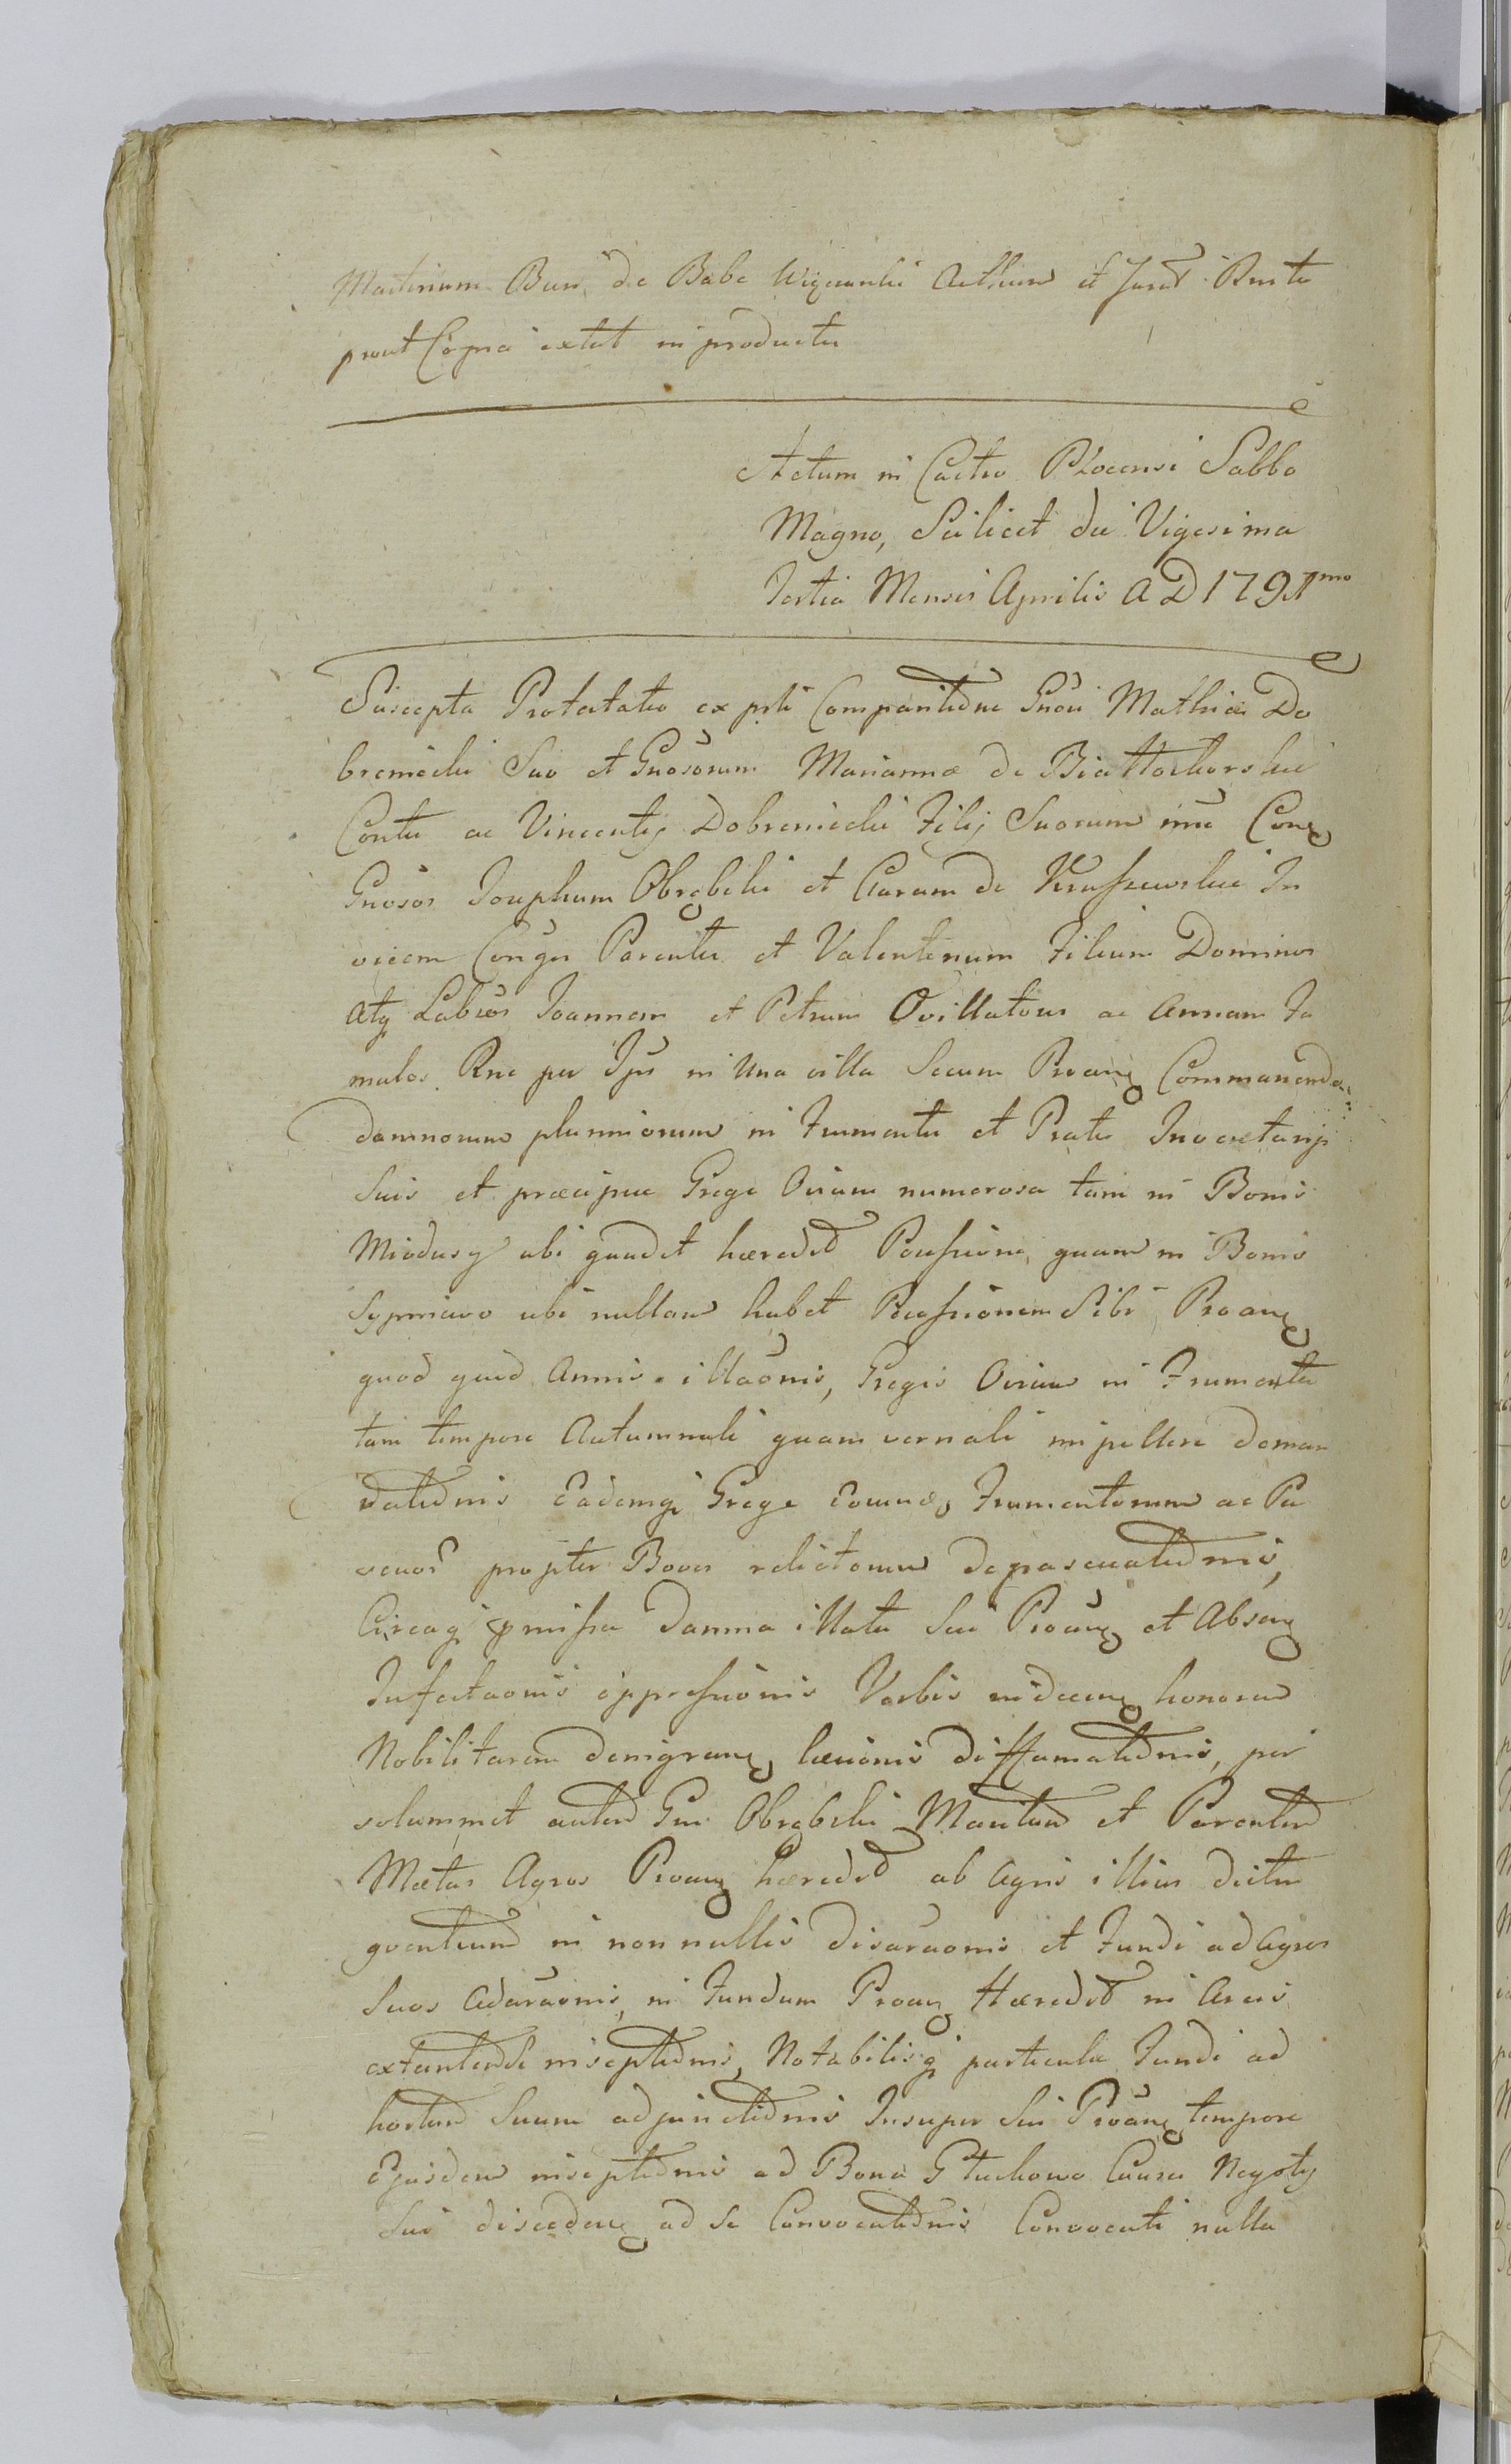 Martinum Bun de Babe Wiqcunski Actum et Jurat Rnte
prout Copia extat in productu
Actum in Castro Plocensi Sabbo
Magno, Scilicet die Vigesima
Tertia Mensis Aprilis A D 1791mo
Suscepta Protestatio ex prte Comparitione Gnosi Mathiae Do
bremiecki Suo et Gnosorum Mariannae de Białłoskorskie
Contu ac Vincentij Dobremiecki Filij Suorum nne Conq
Gnosos Josephum Obrębski et Claram de Kruszewskie In
vicem Conges Parentes et Valentinum Filium Dominos
Atq Labios Joannem et Petrum Ovillatores ac Annam Fa
mulos Rne per Ipsos in Una villa Secum Proanq Commanendo
damnorum plurimorum in Frumentis et Pratis Invectarijs
Suis et praecipue Grege Ovium numerosa tam in Bonis
Miodusy ubi gaudet haeredit Possessione, quam in Bonis
Sypniewo ubi nullam habet Possessionem Sibi Proanq
quod quid Annis illaonis, Gregis Ovium in Frumenta
tam tempore Autumnali quam vernali impellere deman
datidnis Eademq Grege Eorundq Frumentorum ac Pa
scuor propter Boves relictorum depascuatidnis,
Circaq pmissa damna illata Sui Proanq et Absenq
Infestaonis oppressionis Verbis indecenq honorem
Nobilitarem denigranq laesionis diffamatidnis, per
solummet autem Gnm Obrębski Maritum et Parentem
Metas Agros Proanq haeredit ab Agris illius distin
gventium in non nullis disaraonis et Fundi ad Agros
Suos Adaraonis, in Fundum Proanq Haeredit in Areis
extantendi inseptidnis, Notabilisq particula Fundi ad
hortum Suum adjunctidnis Insuper Sui Proanq tempore
Ejusdem inseptidnis ad Bona Głuchowo Causa Negotij
Sui discedenq ad se Convocatidnis Convocati nulla